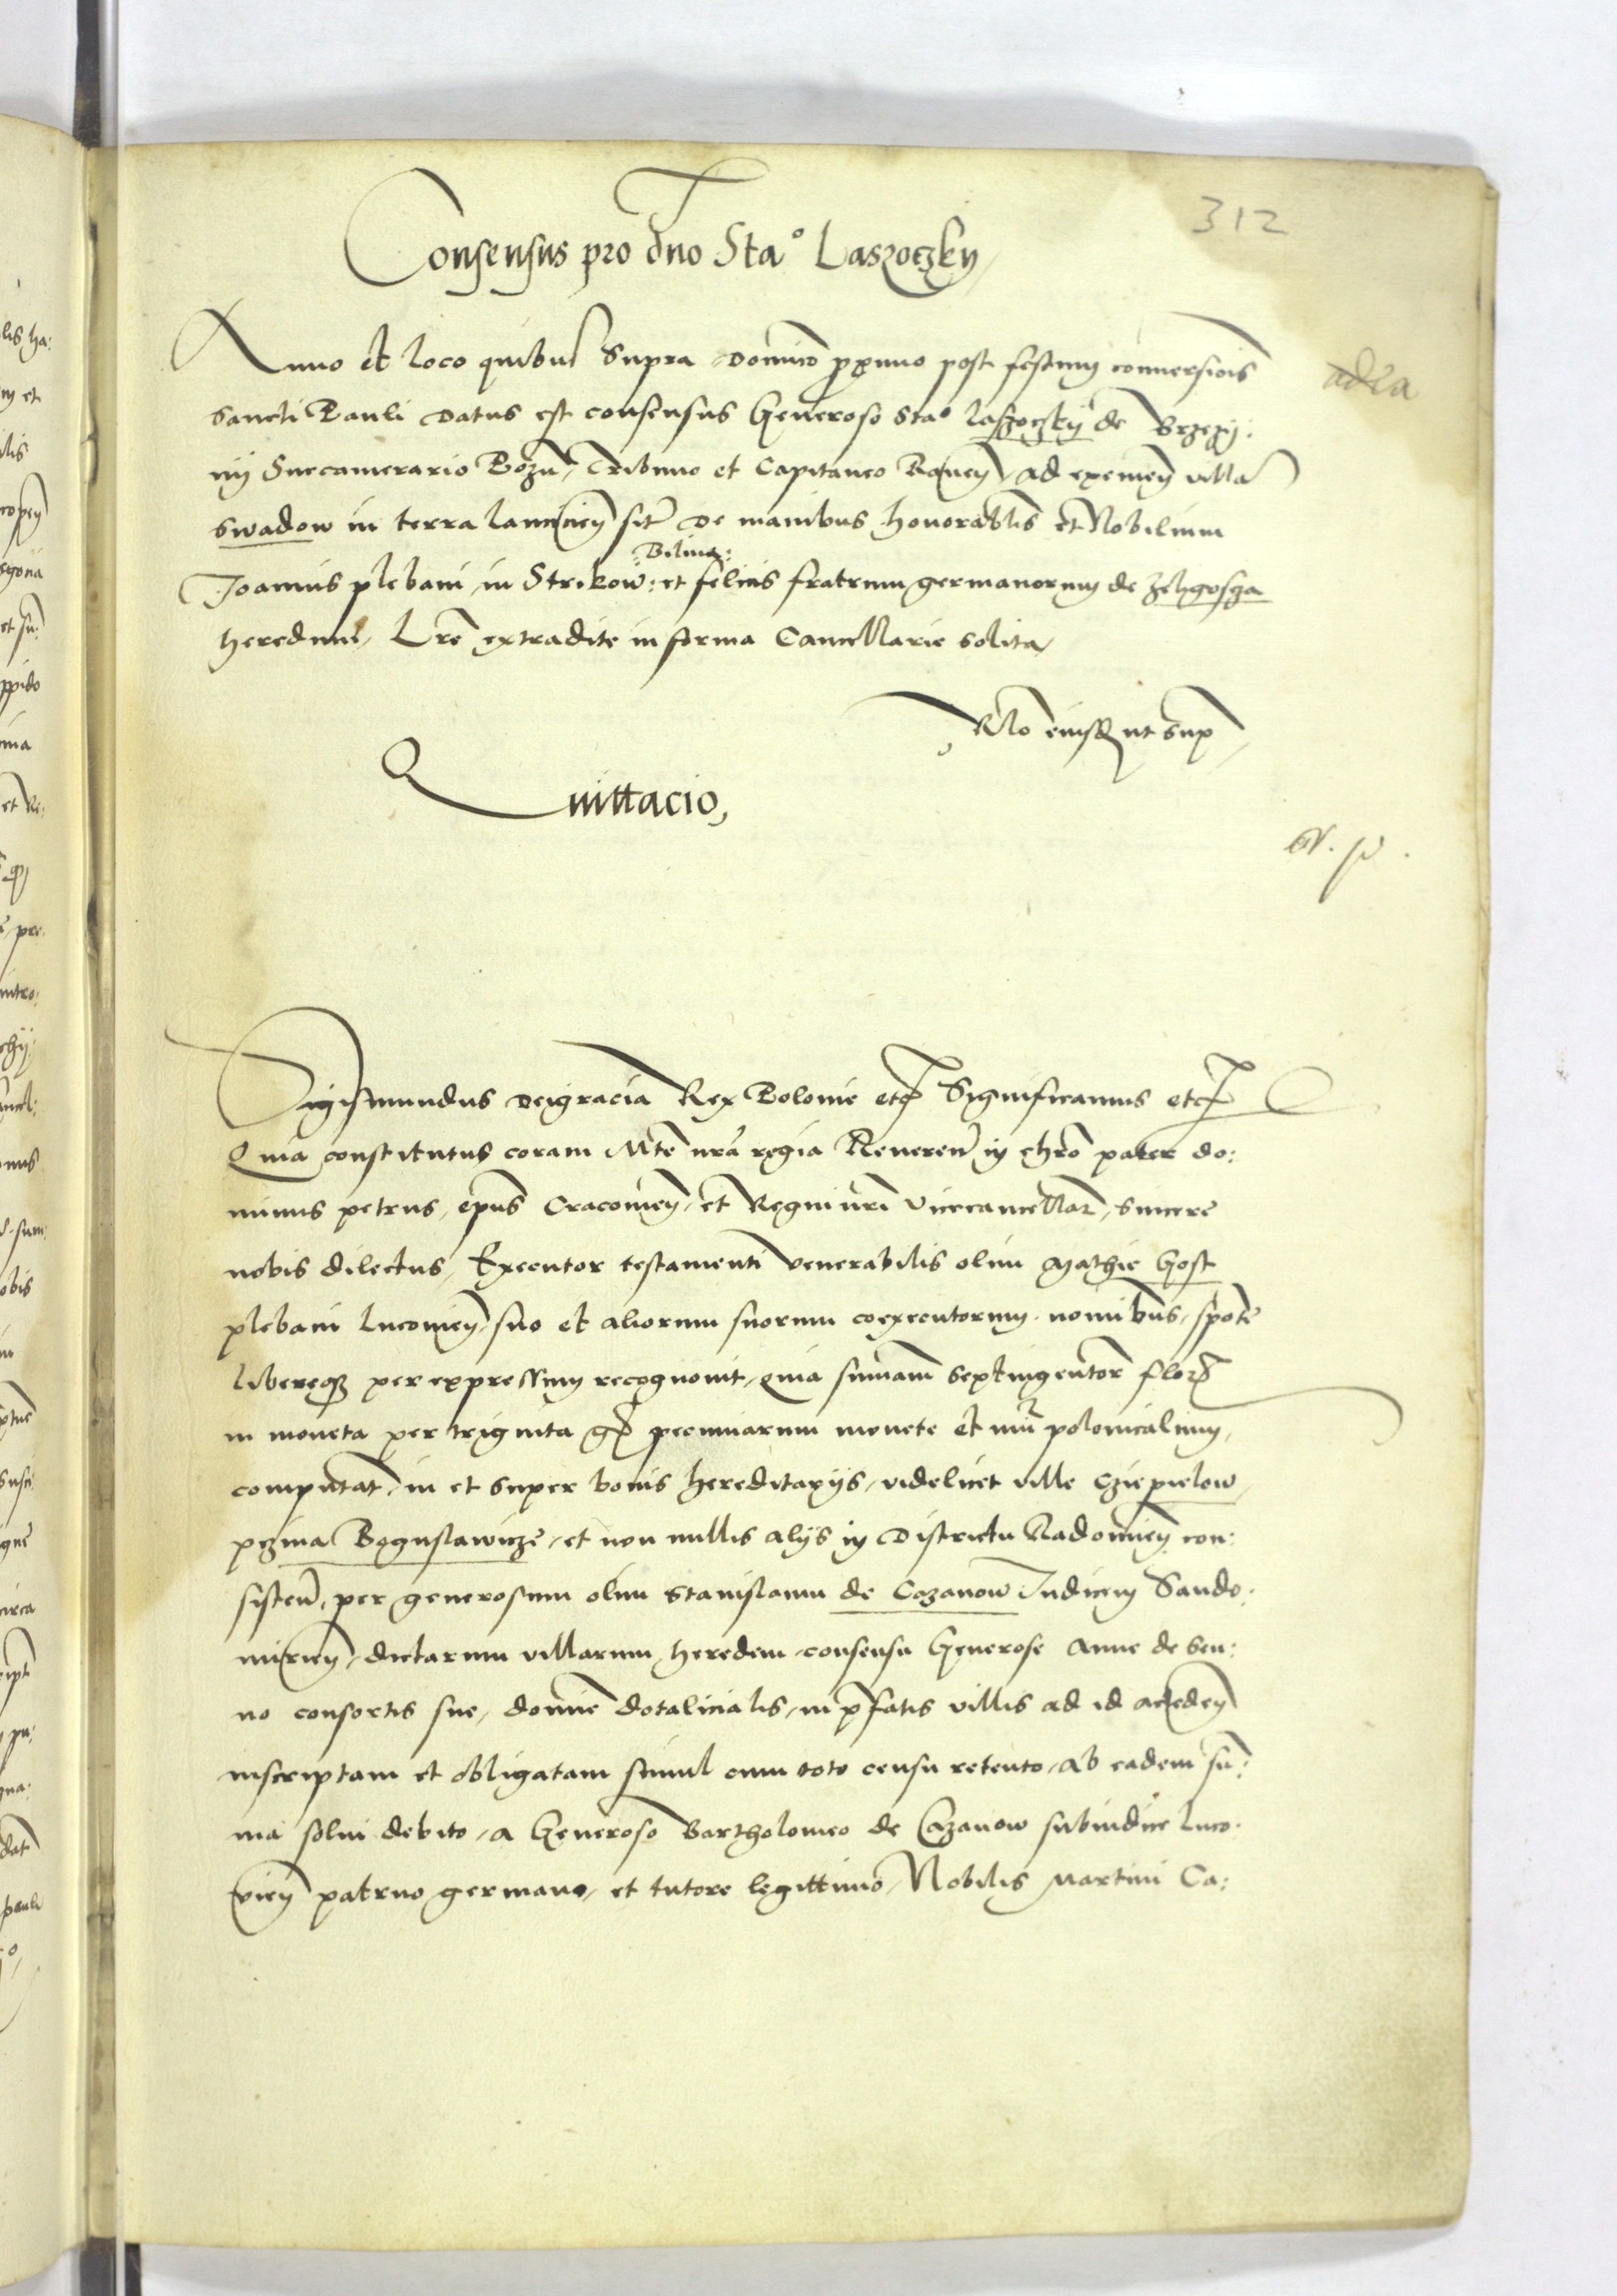 312
Consensus pro dno Sta° Laszoczky
Anno et loco quibus supra Dominico pximo post festum conuersiois
Sancti Pauli Datus est consensus Generoso Sta° Laszoczky de Brzezy:
ny Succamerario Pozn, Tribuno et Capitaneo Rauen, ad eximen villa
swadow in terra Lancicien sit De manibus honorabilis et Nobilium
Bilina:
Joannis plebani in Strikow: et felicis fratrum germanorum de Zelgosza
heredum, Lre extradite in forma Cancellarie solita,
Rlo eiusdem ut sup
Quittacio,
Sigismundus Dei gracia Rex Polonie etc Significamus etc
Quia constitutus coram Mte nra regia Reueren in chro pater do:
minus petrus, epus Cracouien, et Regni nri Vicecancellar, sincere
nobis dilectus, Executor testamenti venerabilis olim Mathie Gost
plebani Lucouien, suo et aliorum suorum coexecutorum nomibus, sponte
libereque per expressum recognouit, quia sumam septingentor flor
in moneta per triginta gr pecuniarum monete et nu polonicalium,
computat, in et super bonis hereditariis, videlicet ville Cziepielow
pczina Boguslawicze, et non nullis aliis in Districtu Radomien con:
sisten, per generosum olim Stanislaum de Cazanow Iudicem Sando:
mirien, dictarum villarum heredem, consensu Generose Anne de Sen:
no consortis sue, domine dotalicialis, in pfatis villis ad id acceden
inscriptam et obligatam simul cum toto censu retento, ab eadem su:
ma solui debito, a Generoso Bartholomeo de Cazanow subiudice Luco:
vien patruo germano, et tutore legittimo, Nobilis Martini Ca: